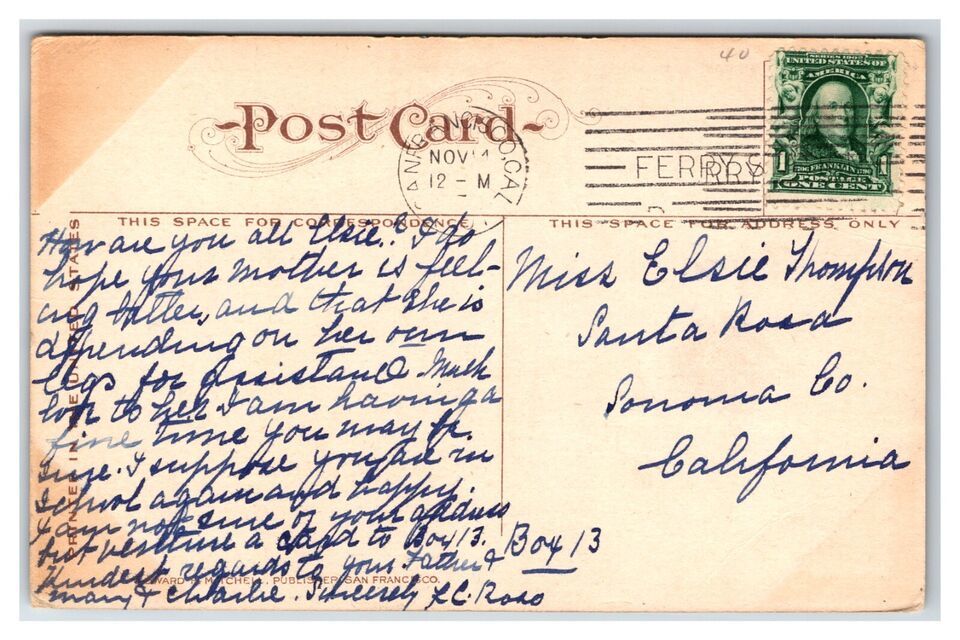 40
SERIES 1902
UNITED STATES OF
AMERICA
1 FRANKLIN 1
POSTAGE
ONE CENT
Post Card
SAN FRANCISCO, CAL.
NOV 14
12 - M
FERRY S
THIS SPACE FOR CORRESPONDENCE
THIS SPACE FOR ADDRESS ONLY
PRINTED IN THE UNITED STATES
How are you all Elsie? I do
hope your mother is feel-
ing better, and that she is
depending on her own
legs for assistance. Much
love to her. I am having a
fine time you may be
sure. I suppose you are in
school again and happy.
I am not sure of your address
but venture a card to Box 13.
Kindest regards to your Father &
Mary & Charlie. Sincerely
EDWARD H. MITCHELL, PUBLISHER, SAN FRANCISCO.
Miss Elsie Thompson
Santa Rosa
Sonoma Co.
California
Box 13